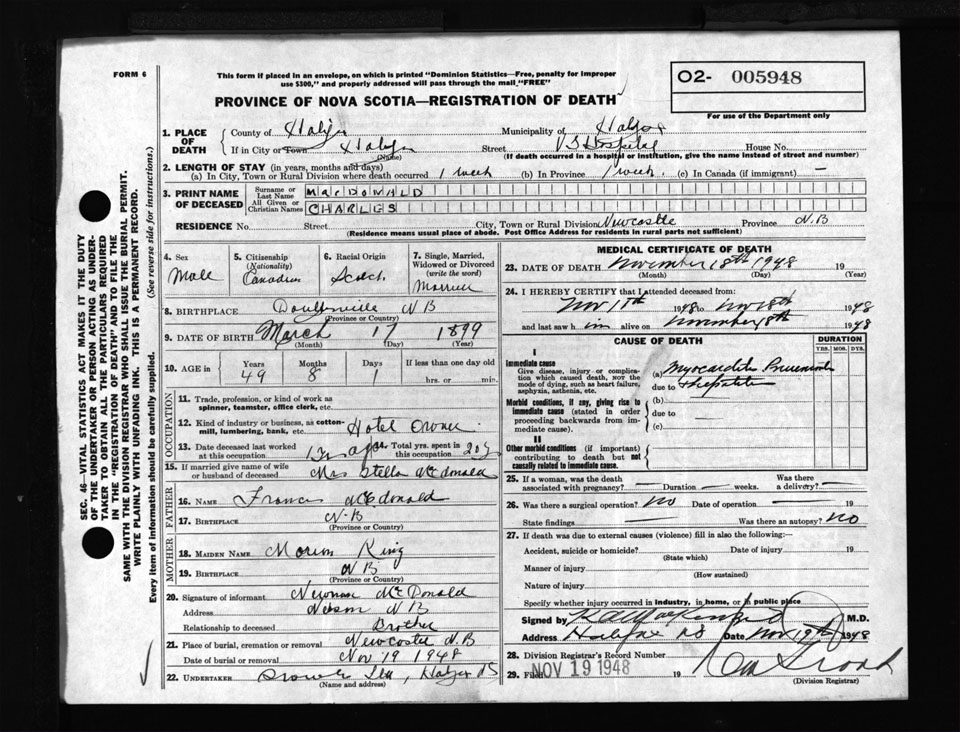 FORM 6
This form if placed in an envelope, on which is printed "Dominion Statistics—Free, penalty for improper
use $300," and properly addressed will pass through the mail "FREE"
O2- 005948
For use of the Department only
PROVINCE OF NOVA SCOTIA—REGISTRATION OF DEATH
1. PLACE OF DEATH County of Halifax Municipality of Halifax
If in City or Town Halifax (Name) Street V G Hospital House No.
(If death occurred in a hospital or institution, give the name instead of street and number)
2. LENGTH OF STAY (in years, months and days)
(a) In City, Town or Rural Division where death occurred 1 week (b) In Province 1 week. (c) In Canada (if immigrant) —
3. PRINT NAME OF DECEASED Surname or Last Name MACDONALD
All Given or Christian Names CHARLES
RESIDENCE No. Street City, Town or Rural Division Newcastle Province N.B
(Residence means usual place of abode. Post Office Address for residents in rural parts not sufficient)
4. Sex Male
5. Citizenship (Nationality) Canadian
6. Racial Origin Scotch
7. Single, Married, Widowed or Divorced (write the word) Married
8. BIRTHPLACE N B
(Province or Country)
9. DATE OF BIRTH March 17 1899
(Month) (Day) (Year)
10. AGE in Years 49 Months 8 Days If less than one day old hrs. or min.
OCCUPATION
11. Trade, profession, or kind of work as
spinner, teamster, office clerk, etc.
12. Kind of industry or business, as cotton-
mill, lumbering, bank, etc. Hotel Owner
13. Date deceased last worked at this occupation ago 14. Total yrs. spent in this occupation 20
15. If married give name of wife or husband of deceased Mrs Stella McDonald
FATHER
16. NAME Francis McDonald
17. BIRTHPLACE N-B
(Province or Country)
MOTHER
18. MAIDEN NAME King
19. BIRTHPLACE N B
(Province or Country)
20. Signature of informant Newman McDonald
Address Nelson N B
Relationship to deceased Brother
21. Place of burial, cremation or removal Newcastle N.B
Date of burial or removal Nov 19 1948
22. UNDERTAKER Halifax NS
(Name and address)
MEDICAL CERTIFICATE OF DEATH
23. DATE OF DEATH November 18th 1948 19
(Month) (Day) (Year)
24. I HEREBY CERTIFY that I attended deceased from:
Nov 11th 1948 to Nov 18th 1948
and last saw h im alive on November 18th 1948
CAUSE OF DEATH
DURATION
YRS. MOS. DYS.
I
Immediate cause
Give disease, injury or complica-
tion which caused death, not the
mode of dying, such as heart failure,
asphyxia, asthenia, etc.
(a) Myocarditis
due to Hepatitis
Morbid conditions, if any, giving rise to
immediate cause (stated in order
proceeding backwards from im-
mediate cause).
(b)
due to
(c)
II
Other morbid conditions (if important)
contributing to death but not
causally related to immediate cause.
25. If a woman, was the death
associated with pregnancy? — Duration — weeks. Was there a delivery? —
26. Was there a surgical operation? no Date of operation — 19
State findings — Was there an autopsy? no
27. If death was due to external causes (violence) fill in also the following:
Accident, suicide or homicide? Date of injury 19
(State which)
Manner of injury
(How sustained)
Nature of injury
Specify whether injury occurred in industry, in home, or in public place
Signed by M.D.
Address Halifax NS Date Nov 19th 1948
28. Division Registrar's Record Number
29. Filed NOV 19 1948 19
(Division Registrar)
SEC. 46—VITAL STATISTICS ACT MAKES IT THE DUTY
OF THE UNDERTAKER OR PERSON ACTING AS UNDER-
TAKER TO OBTAIN ALL THE PARTICULARS REQUIRED
IN THE "REGISTRATION OF DEATH" AND TO FILE THE
SAME WITH THE DIVISION REGISTRAR WHO SHALL ISSUE THE BURIAL PERMIT.
WRITE PLAINLY WITH UNFADING INK. THIS IS A PERMANENT RECORD.
Every item of information should be carefully supplied. (See reverse side for instructions.)